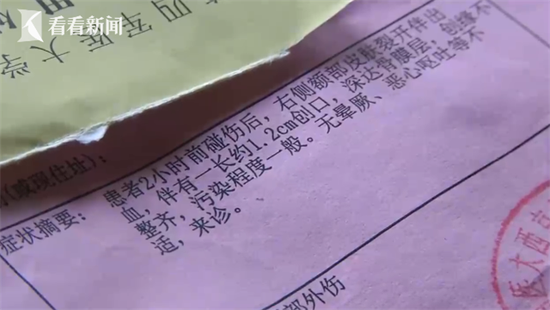 看看新闻
四军医大学
(或现住址):
症状摘要:
患者2小时前碰伤后,右侧额部皮肤裂开伴出
血,伴有一长约1.2cm创口,深达骨膜层,创缘不
整齐,污染程度一般。无晕厥、恶心呕吐等不
适,来诊。
部外伤
医大西京